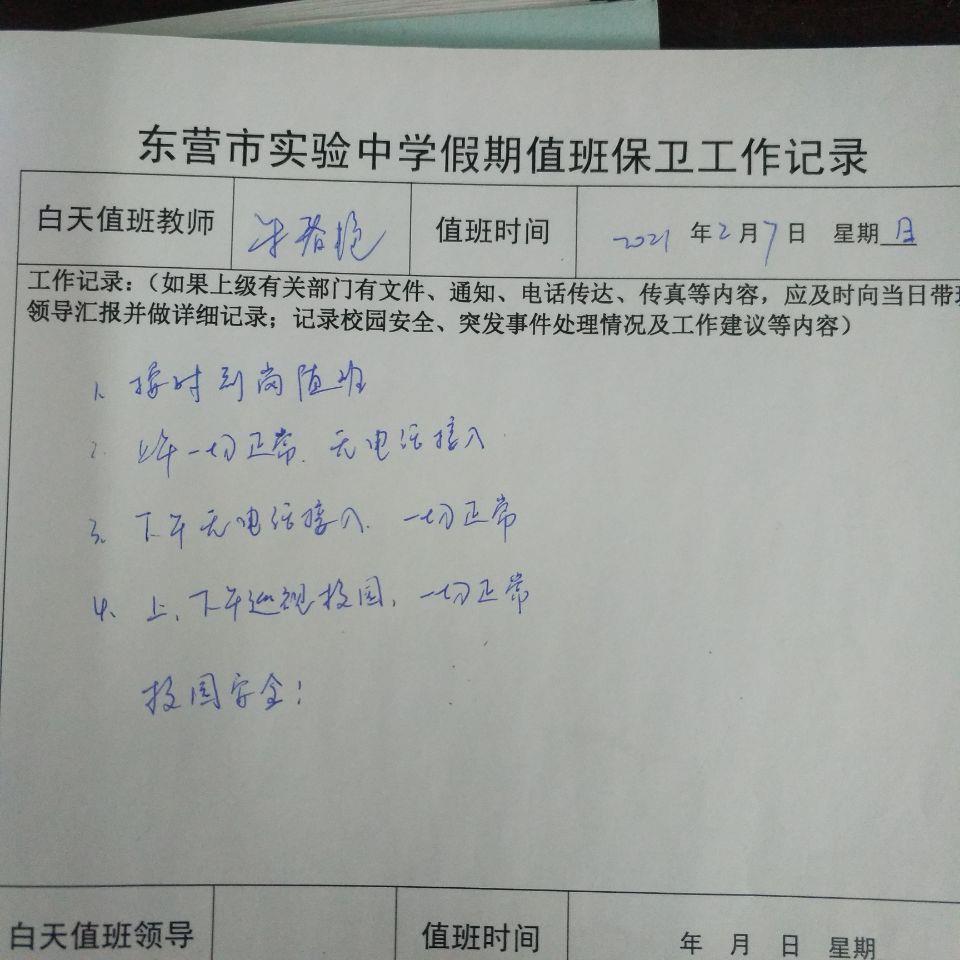 东营市实验中学假期值班保卫工作记录
白天值班教师 值班时间 2021 年 2 月 7 日 星期 日
工作记录：（如果上级有关部门有文件、通知、电话传达、传真等内容，应及时向当日带班
领导汇报并做详细记录；记录校园安全、突发事件处理情况及工作建议等内容）
1. 按时到岗值班
2. 上午一切正常. 无电话接入.
3. 下午无电话接入. 一切正常
4. 上、下午巡视校园，一切正常
校园安全！
白天值班领导 值班时间 年 月 日 星期